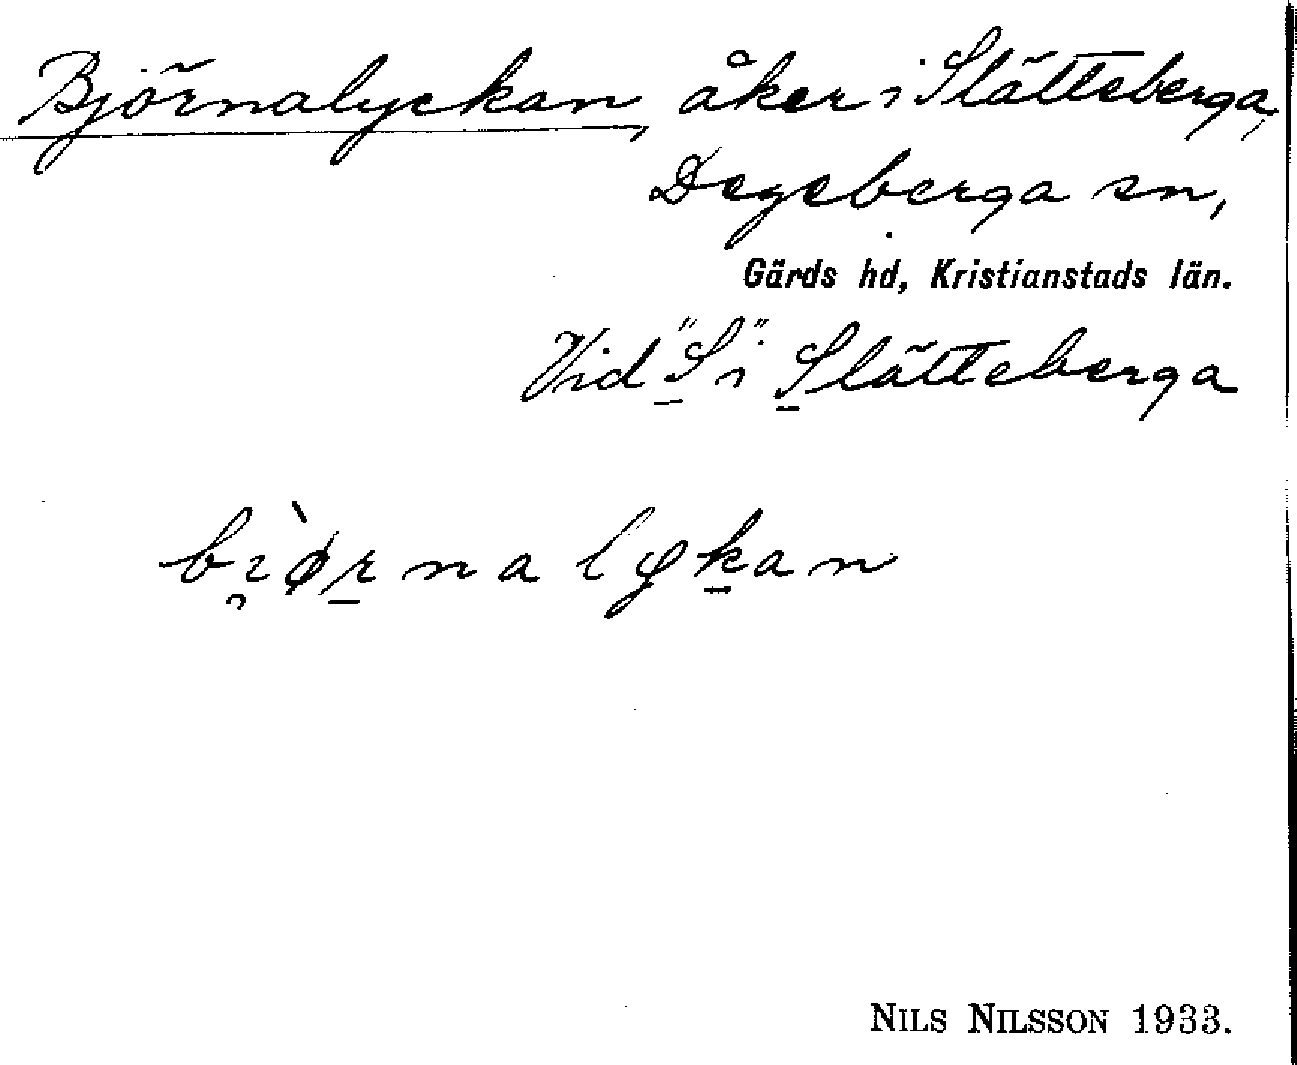 Björnalyckan, åker i Slätteberga,
Degeberga sn,
Gärds hd, Kristianstads län.
Vid "S" i Slätteberga
bi̯ø̀rna lykan
NILS NILSSON 1933.